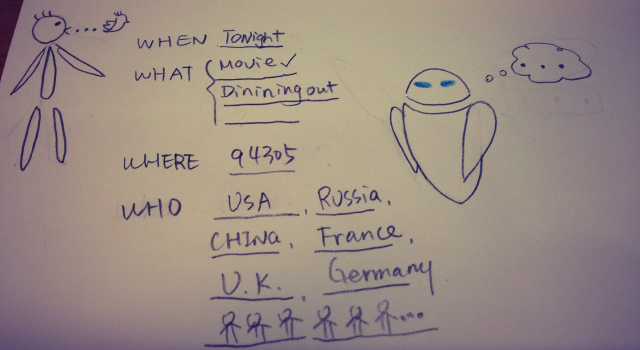 WHEN Tonight
WHAT Movie ✓
Dinining out
WHERE 94305
WHO USA, Russia,
CHINA, France,
U.K., Germany
...